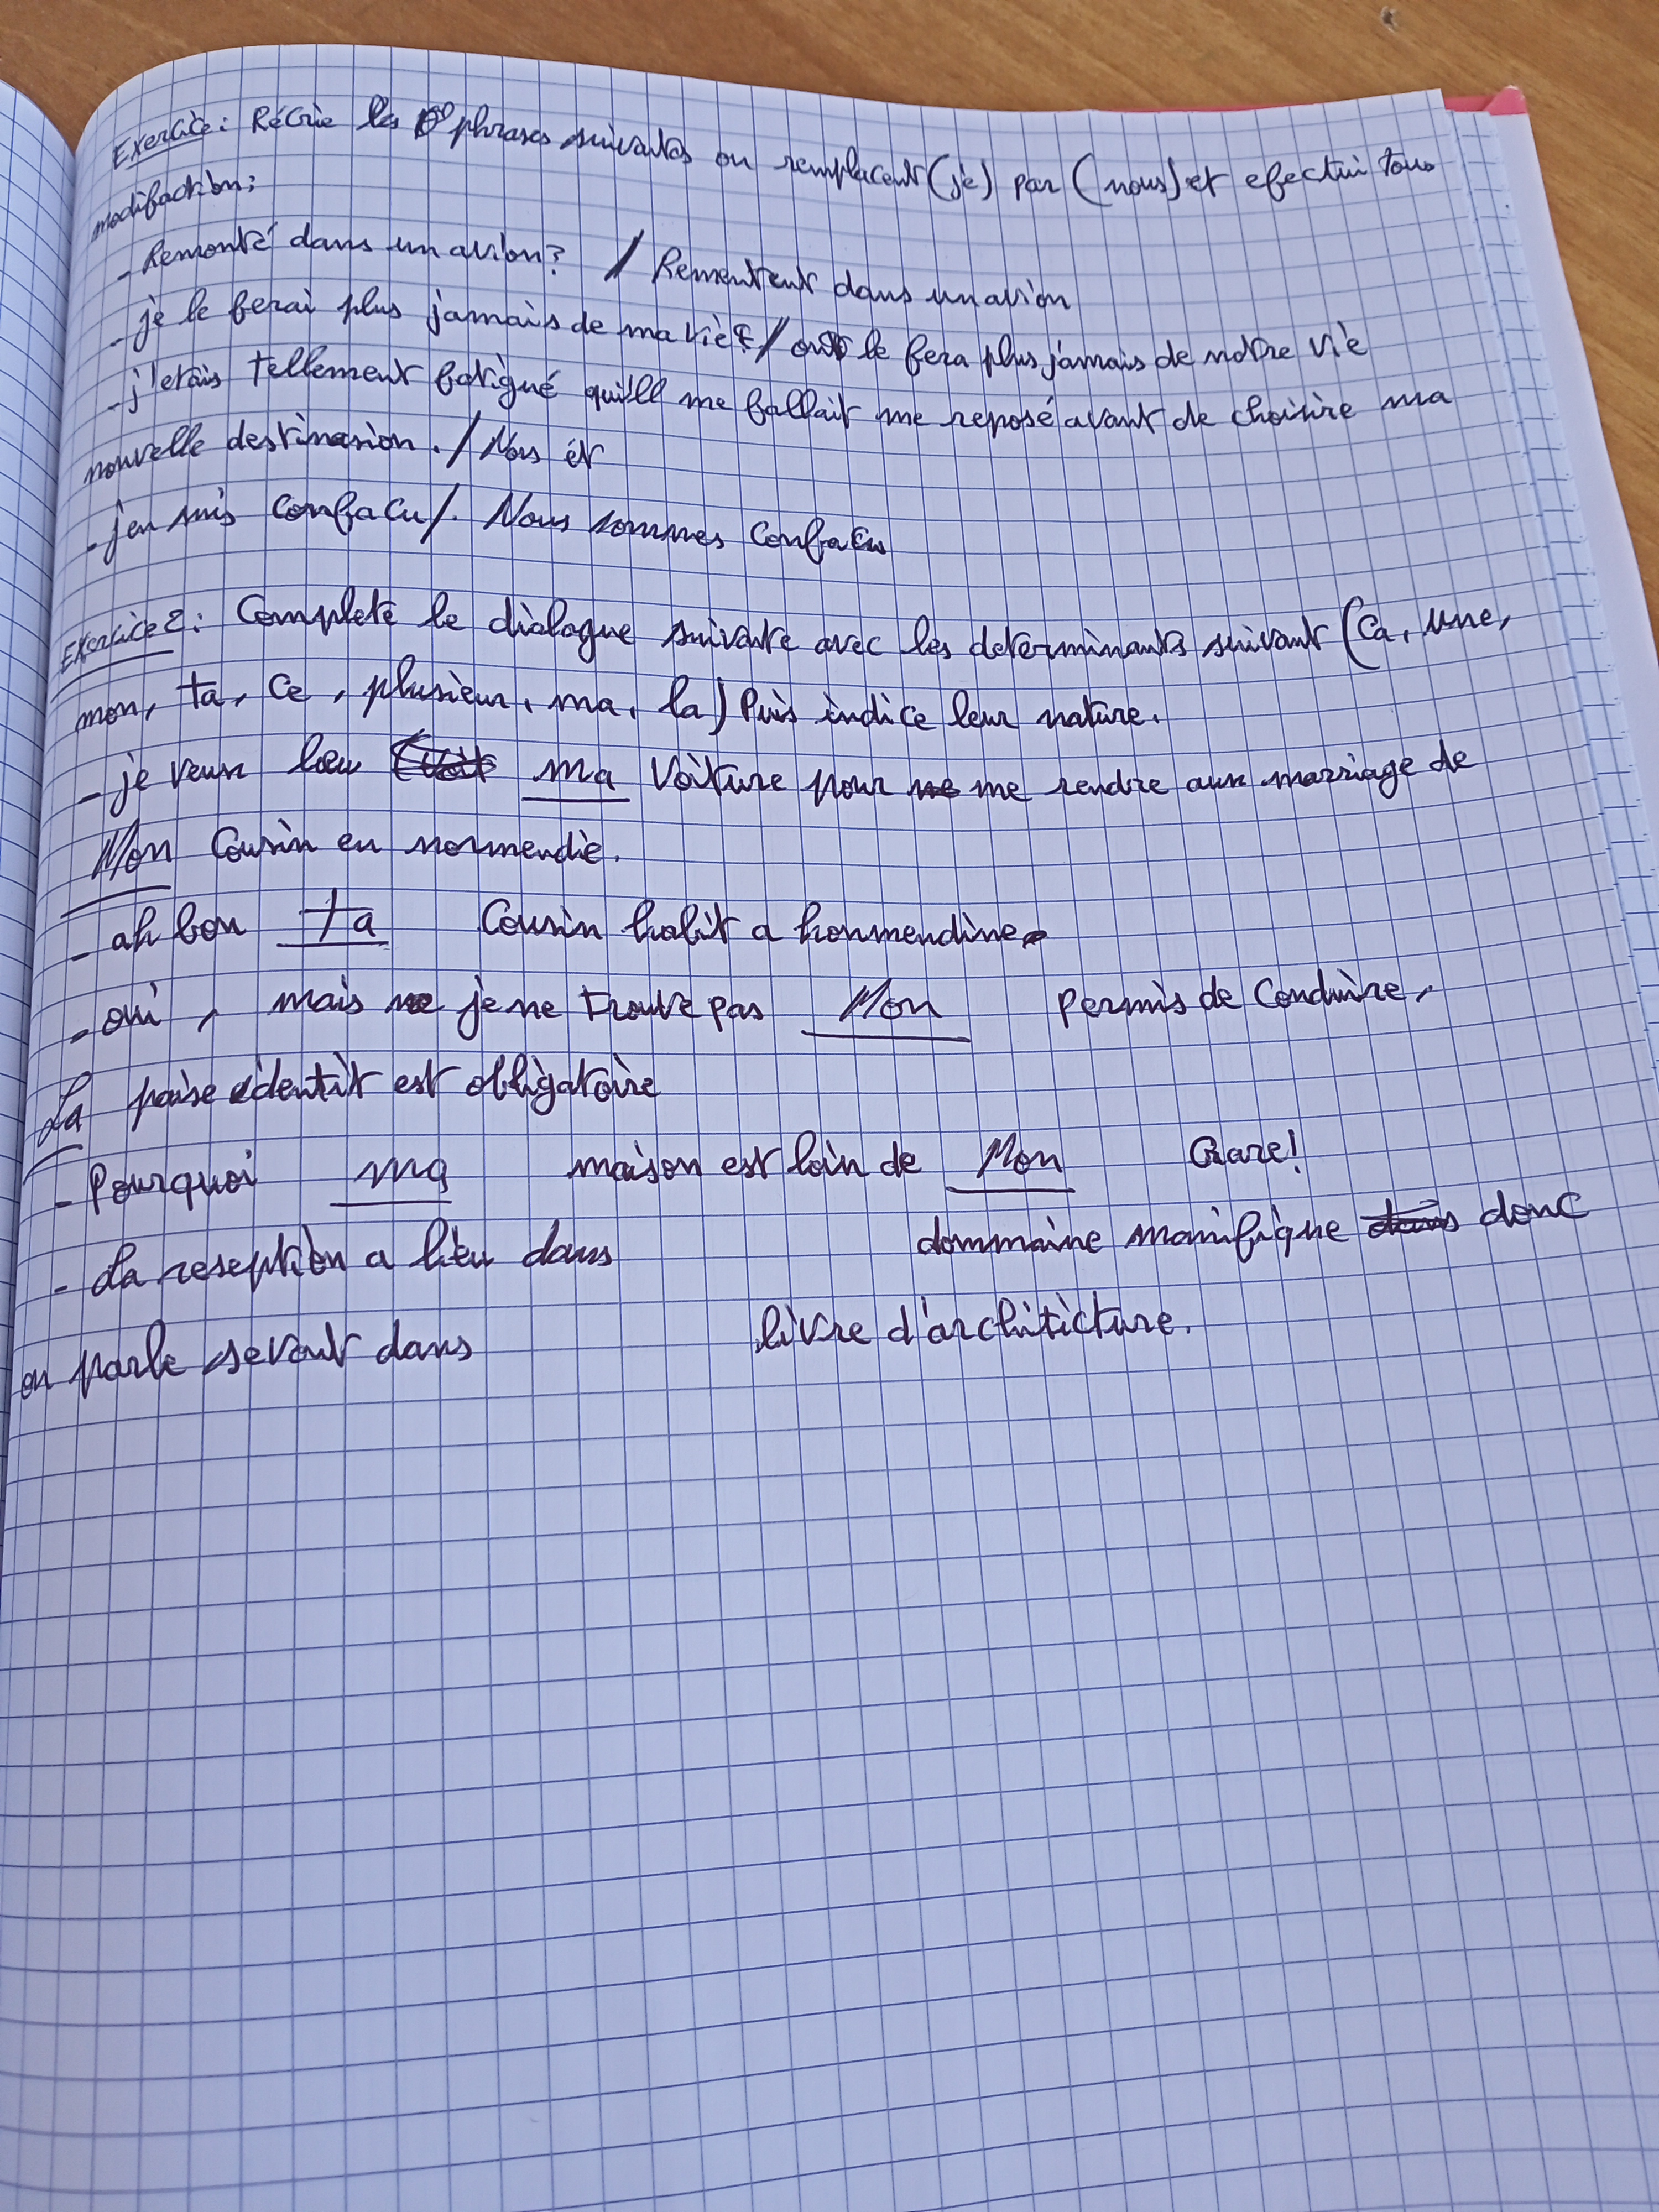 Exercice: Récrie les phrases suivantes on remplacent (je) par (nous) et efectui tous
modifaction:
- Remonté dans un avion? / Remontent dans un avion
- je le ferai plus jamais de ma vie / on le fera plus jamais de notre vie
- j'etais tellement fatigué qu'ill me fallait me reposé avant de choisire ma
nouvelle destinasion. / Nous ét
- jen suis confacu /. Nous sommes confacu
Exercice 2: Complete le dialogue suivante avec les determinants suivant (Ca, une,
mon, ta, ce, plusieur, ma, la) Puis indice leur nature.
- je veux lou ma voiture pour me rendre aux marriage de
Mon Cousin en normendie.
- ah bon ta Cousin habit a honmendine.
- oui, mais je ne trouve pas Mon permis de Conduire,
La paise identit est obligatoire
- Pourquoi ma maison est loin de Mon Gare!
- La reseption a lieu dans dommaine manifique donc
on parle sevent dans livre d'architicture.